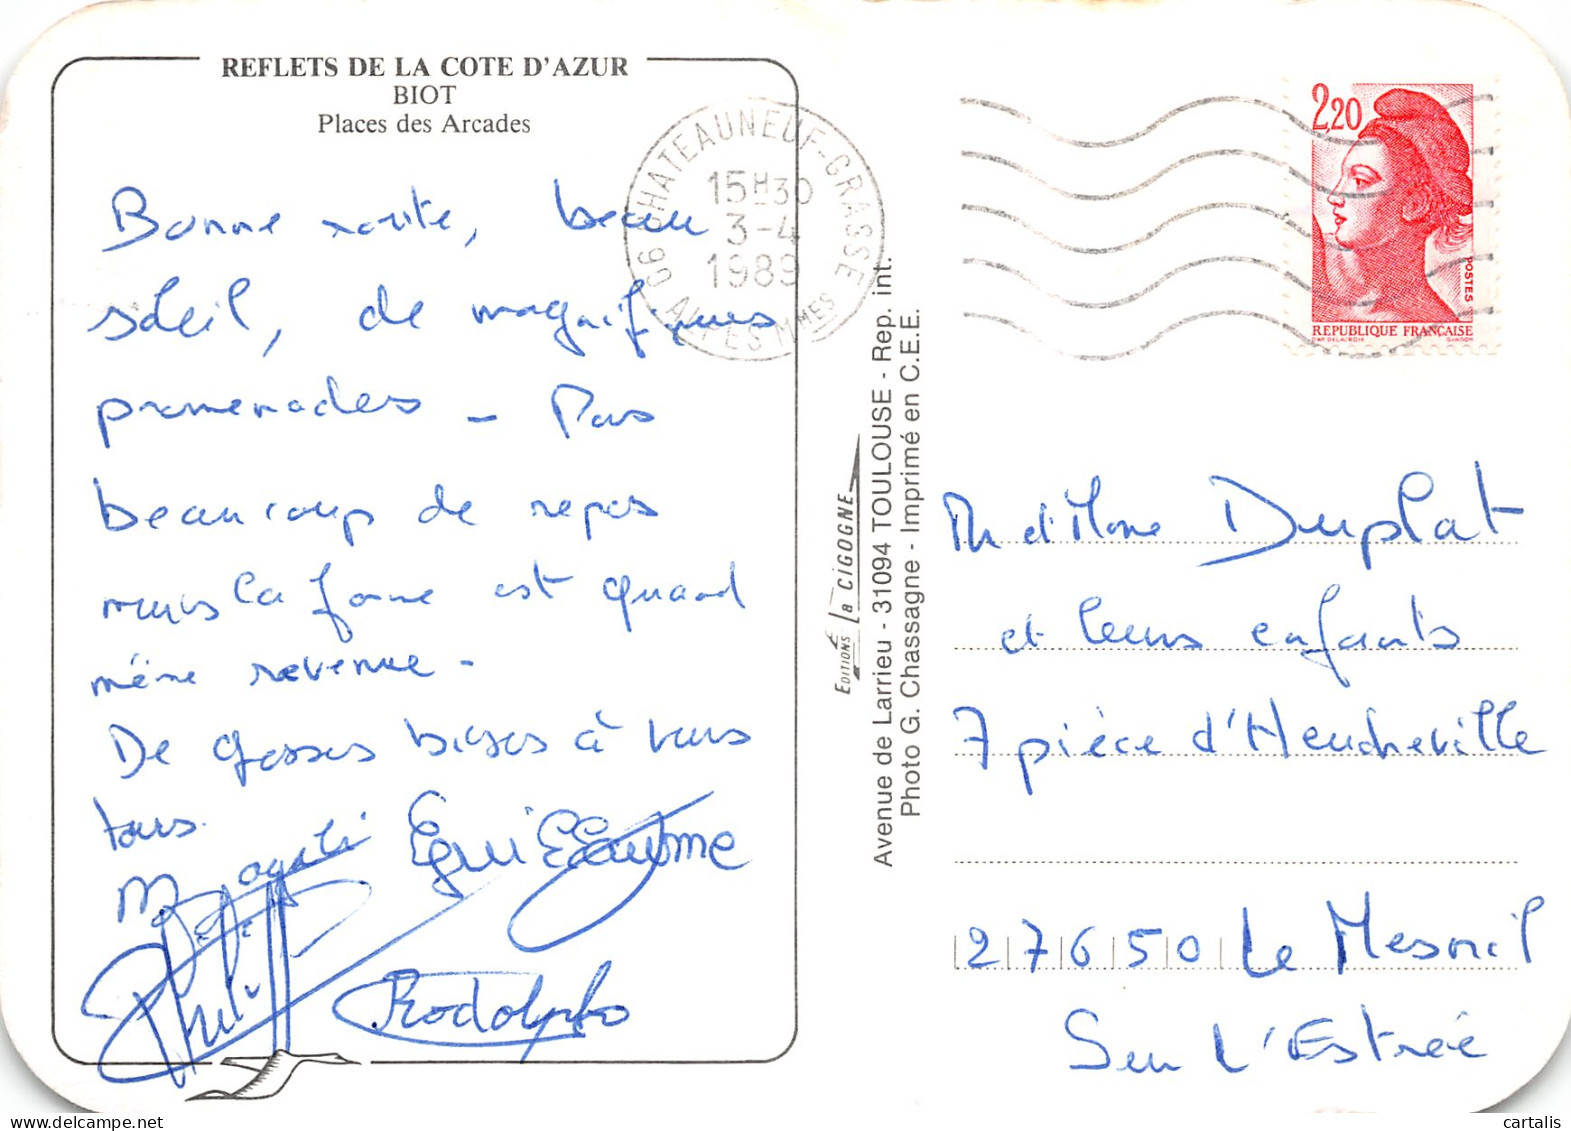 REFLETS DE LA COTE D'AZUR
BIOT
Places des Arcades
Bonne route, beau
soleil, de magnifiques
promenades - Pas
beaucoup de repos
mais la forme est quand
même revenue -
De grosses bises à vous
tous.
Magali Guillaume
Philippe
Rodolphe
06 CHATEAUNEUF-GRASSE
15H30
3-4
1989
ALPES MMES
EDITIONS La CIGOGNE
Avenue de Larrieu - 31094 TOULOUSE - Rep. int.
Photo G. Chassagne - Imprimé en C.E.E.
2,20
POSTES
REPUBLIQUE FRANÇAISE
D'AP. DELACROIX GANDON
Mr et Mme Duplat
et leurs enfants
7 pièce d'Heudreville
27650 Le Mesnil
Sur L'Estrée
delcampe.net
cartalis